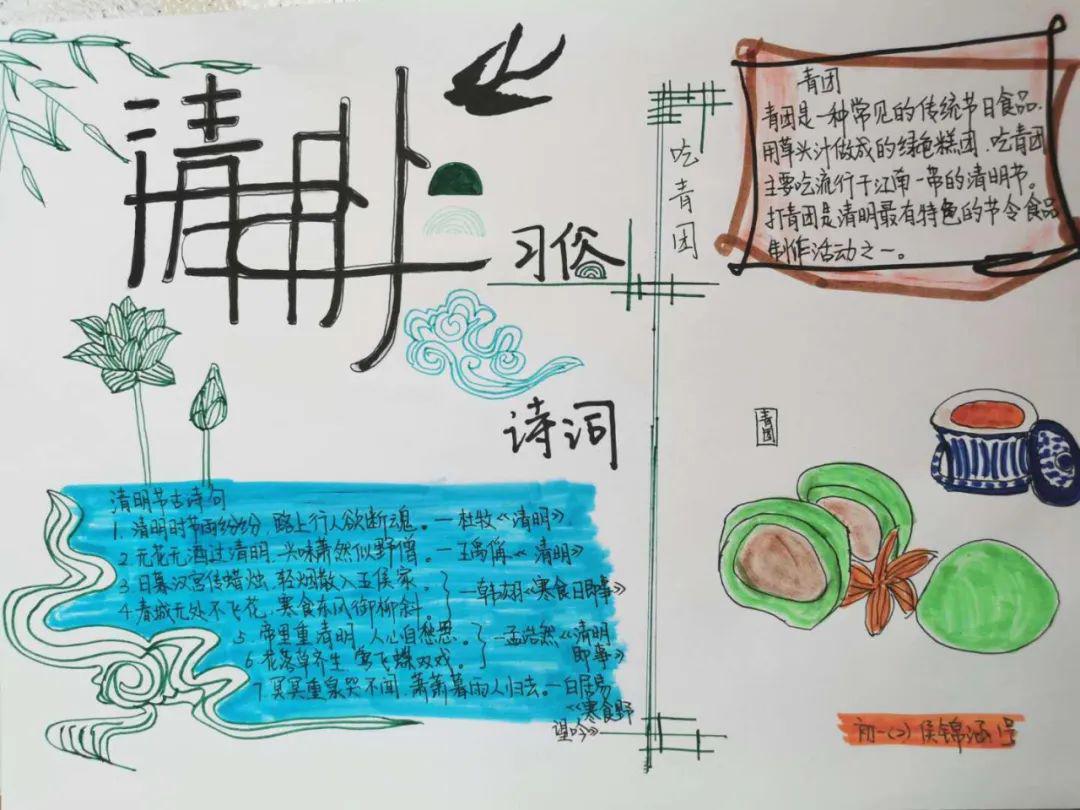 清明
习俗
吃青团
青团
青团是一种常见的传统节日食品.
用草头汁做成的绿色糕团，吃青团
主要吃流行于江南一带的清明节。
打青团是清明最有特色的节令食品
制作活动之一。
诗词
清明节古诗句
1. 清明时节雨纷纷，路上行人欲断魂。—杜牧《清明》
2. 无花无酒过清明，兴味萧然似野僧。—王禹偁《清明》
3. 日暮汉宫传蜡烛，轻烟散入五侯家。
4. 春城无处不飞花，寒食东风御柳斜。 —韩翃《寒食日即事》
5. 帝里重清明，人心自愁思。
6. 花落草齐生，莺飞蝶双戏。 —孟浩然《清明
即事》
7. 冥冥重泉哭不闻，萧萧暮雨人归去。—白居易
《寒食野
望吟》
青团
初一(2) 侯锦涵